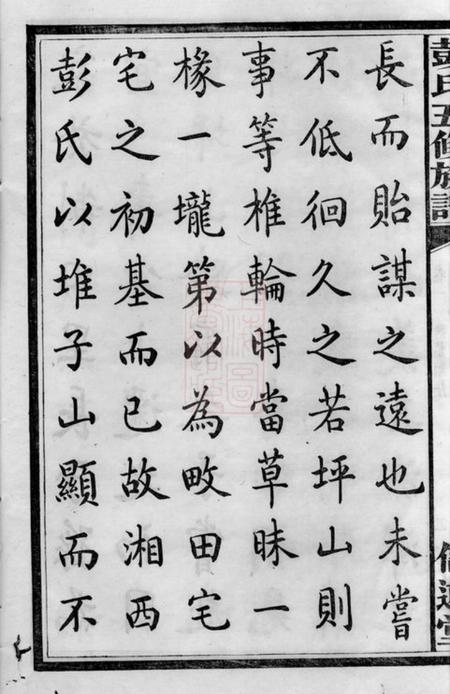 彭氏五修族譜
長而貽謀之遠也未嘗
不低徊久之若坪山則
事等椎輪時當草昧一
椽一壠第以為畋田宅
宅之初基而已故湘西
彭氏以堆子山顯而不